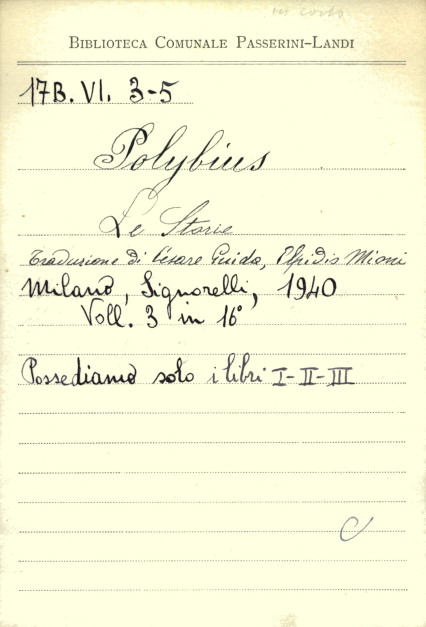 BIBLIOTECA COMUNALE PASSERINI-LANDI
17B. VI. 3-5
Polybius
Le Storie
Traduzione di Cesare Guida, Elpidio Mioni
Milano, Signorelli, 1940
Voll. 3 in 16°
Possediamo solo i libri I-II-III